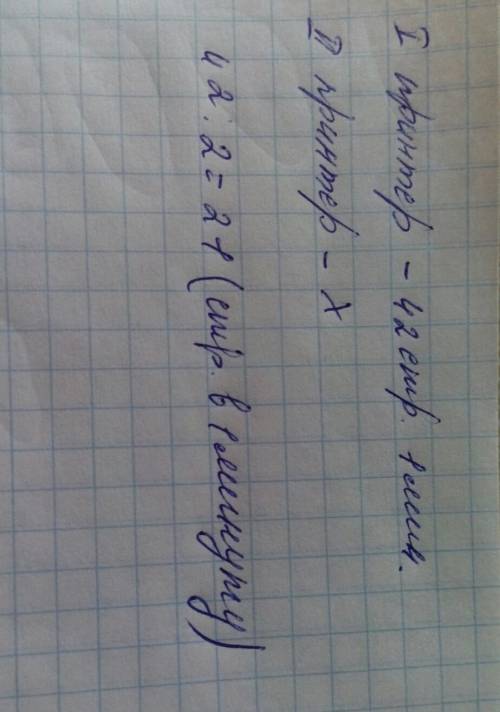 I принтер - 42 стр. 1 мин.
II принтер - x
42 : 2 = 21 (стр. в 1 минуту)